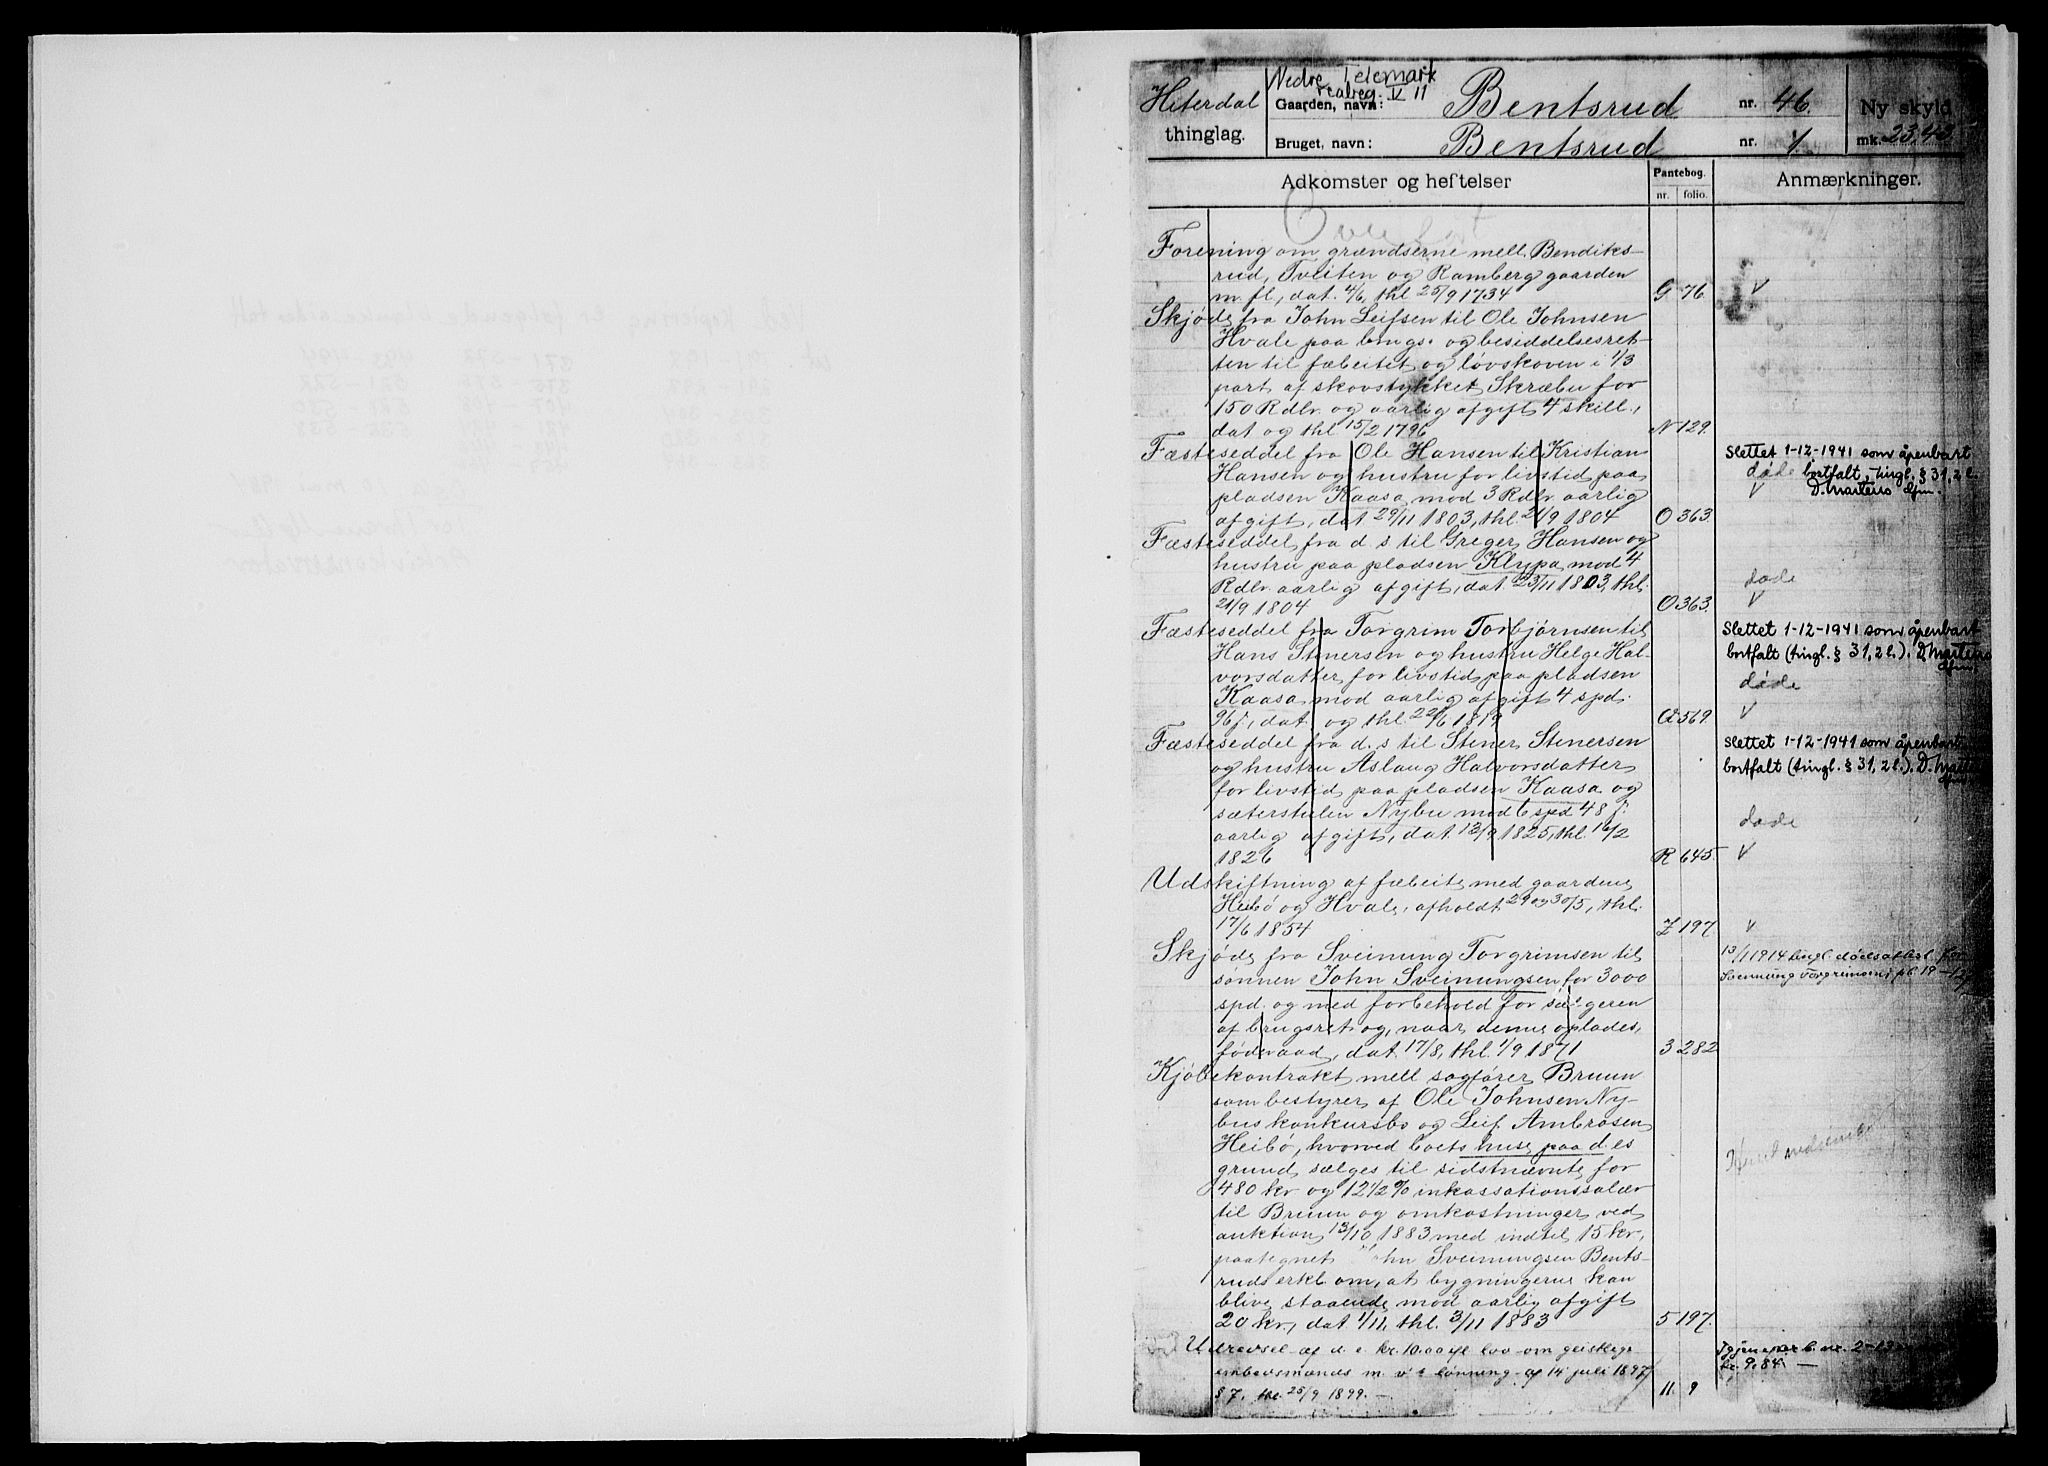 Nedre Telemark
realreg. V 11
Hiterdal
thinglag.
Gaarden, navn: Bentsrud nr. 46.
Bruget, navn: Bentsrud nr. 1
Ny skyld
mk. 23,43
Adkomster og heftelser
Pantebog.
nr. folio.
Anmærkninger.
Forening om grændserne mell. Bendiks-
rud, Tveiten og Ramberg gaarden
m. fl., dat. 4/6, thl. 25/9 1734 G 76. V
Skjøde fra John Leifsen til Ole Johnsen
Hvale paa brugs- og besiddelsesret-
ten til fæbeitet og løvskoven i 1/3
part af skovstykket Skræbu for
150 Rdlr. og aarlig afgift 4 skill.,
dat og thl. 15/2 1796 N 129.
Fæsteseddel fra Ole Hansen til Kristian
Hansen og hustru for livstid paa
pladsen Kaasa mod 3 Rdlr aarlig
afgift, dat 29/11 1803, thl. 21/9 1804 O 363.
Slettet 1-12-1941 som åpenbart
døde bortfalt, tingl. § 31, 2 l.
V D. Martens dfm.
Fæsteseddel fra d. s til Greger Hansen og
hustru paa pladsen Klypa mod 4
Rdlr. aarlig afgift, dat. 23/11 1803, thl.
21/9 1804 O 363.
døde
V
Fæsteseddel fra Torgrim Torbjørnsen til
Hans Stenersen og hustru Helge Hal-
vorsdatter for livstid paa pladsen
Kaasa mod aarlig afgift 4 spd.
96 s, dat og thl. 22/6 1819 Q 569.
Slettet 1-12-1941 som åpenbart
bortfalt (tingl. § 31, 2 l.). D. Martens
dfm.
døde
V
Fæsteseddel fra d. s til Stener Stenersen
og hustru Aslaug Halvorsdatter
for livstid paa pladsen Kaasa og
sæterstulen Nybu mod 6 spd 48 s
aarlig afgift, dat. 12/9 1825, thl. 16/2
1826 R 645.
Slettet 1-12-1941 som åpenbart
bortfalt (tingl. § 31, 2 l.). D. Martens
dfm.
døde
V
Udskiftning af fæbeite med gaardene
Heibø og Hvale, afholdt 29 og 30/5, thl.
17/6 1854 Z 197. V
Skjøde fra Sveinung Torgrimsen til
sønnen John Sveinungsen for 3000
spd. og med forbehold for sælgeren
af brugsret og, naar denne oplades,
føderaad, dat. 17/8, thl. 1/9 1871 3 282
13/1 1914 tingl. dødsattest for
Svennung Torgrimsen, pb. 19 -
Kjøbekontrakt mell sagfører Bruun
som bestyrer af Ole Johnsen Ny-
bus konkursbo og Leif Ambrosen
Heibø, hvorved boets huse paa d. es
grund sælges til sidstnævnte for
480 kr og 12 1/2 % inkassationssalær
til Bruun og omkostninger ved
auktion 13/10 1883 med indtil 15 kr,
paategnet John Sveinungsen Bents-
ruds erkl. om, at bygningerne kan
blive staaende mod aarlig afgift
20 kr., dat. 1/11, thl. 3/11 1883 5 197.
Udrevsel af d. e kr. 10.00 efl lov om geistlige
embedsmænds m. v s lønning af 14 juli 1897
§ 7, thl. 25/9 1899. — 11. 9
Igjen paa b. nr. 2-13
kr. 9.84. —